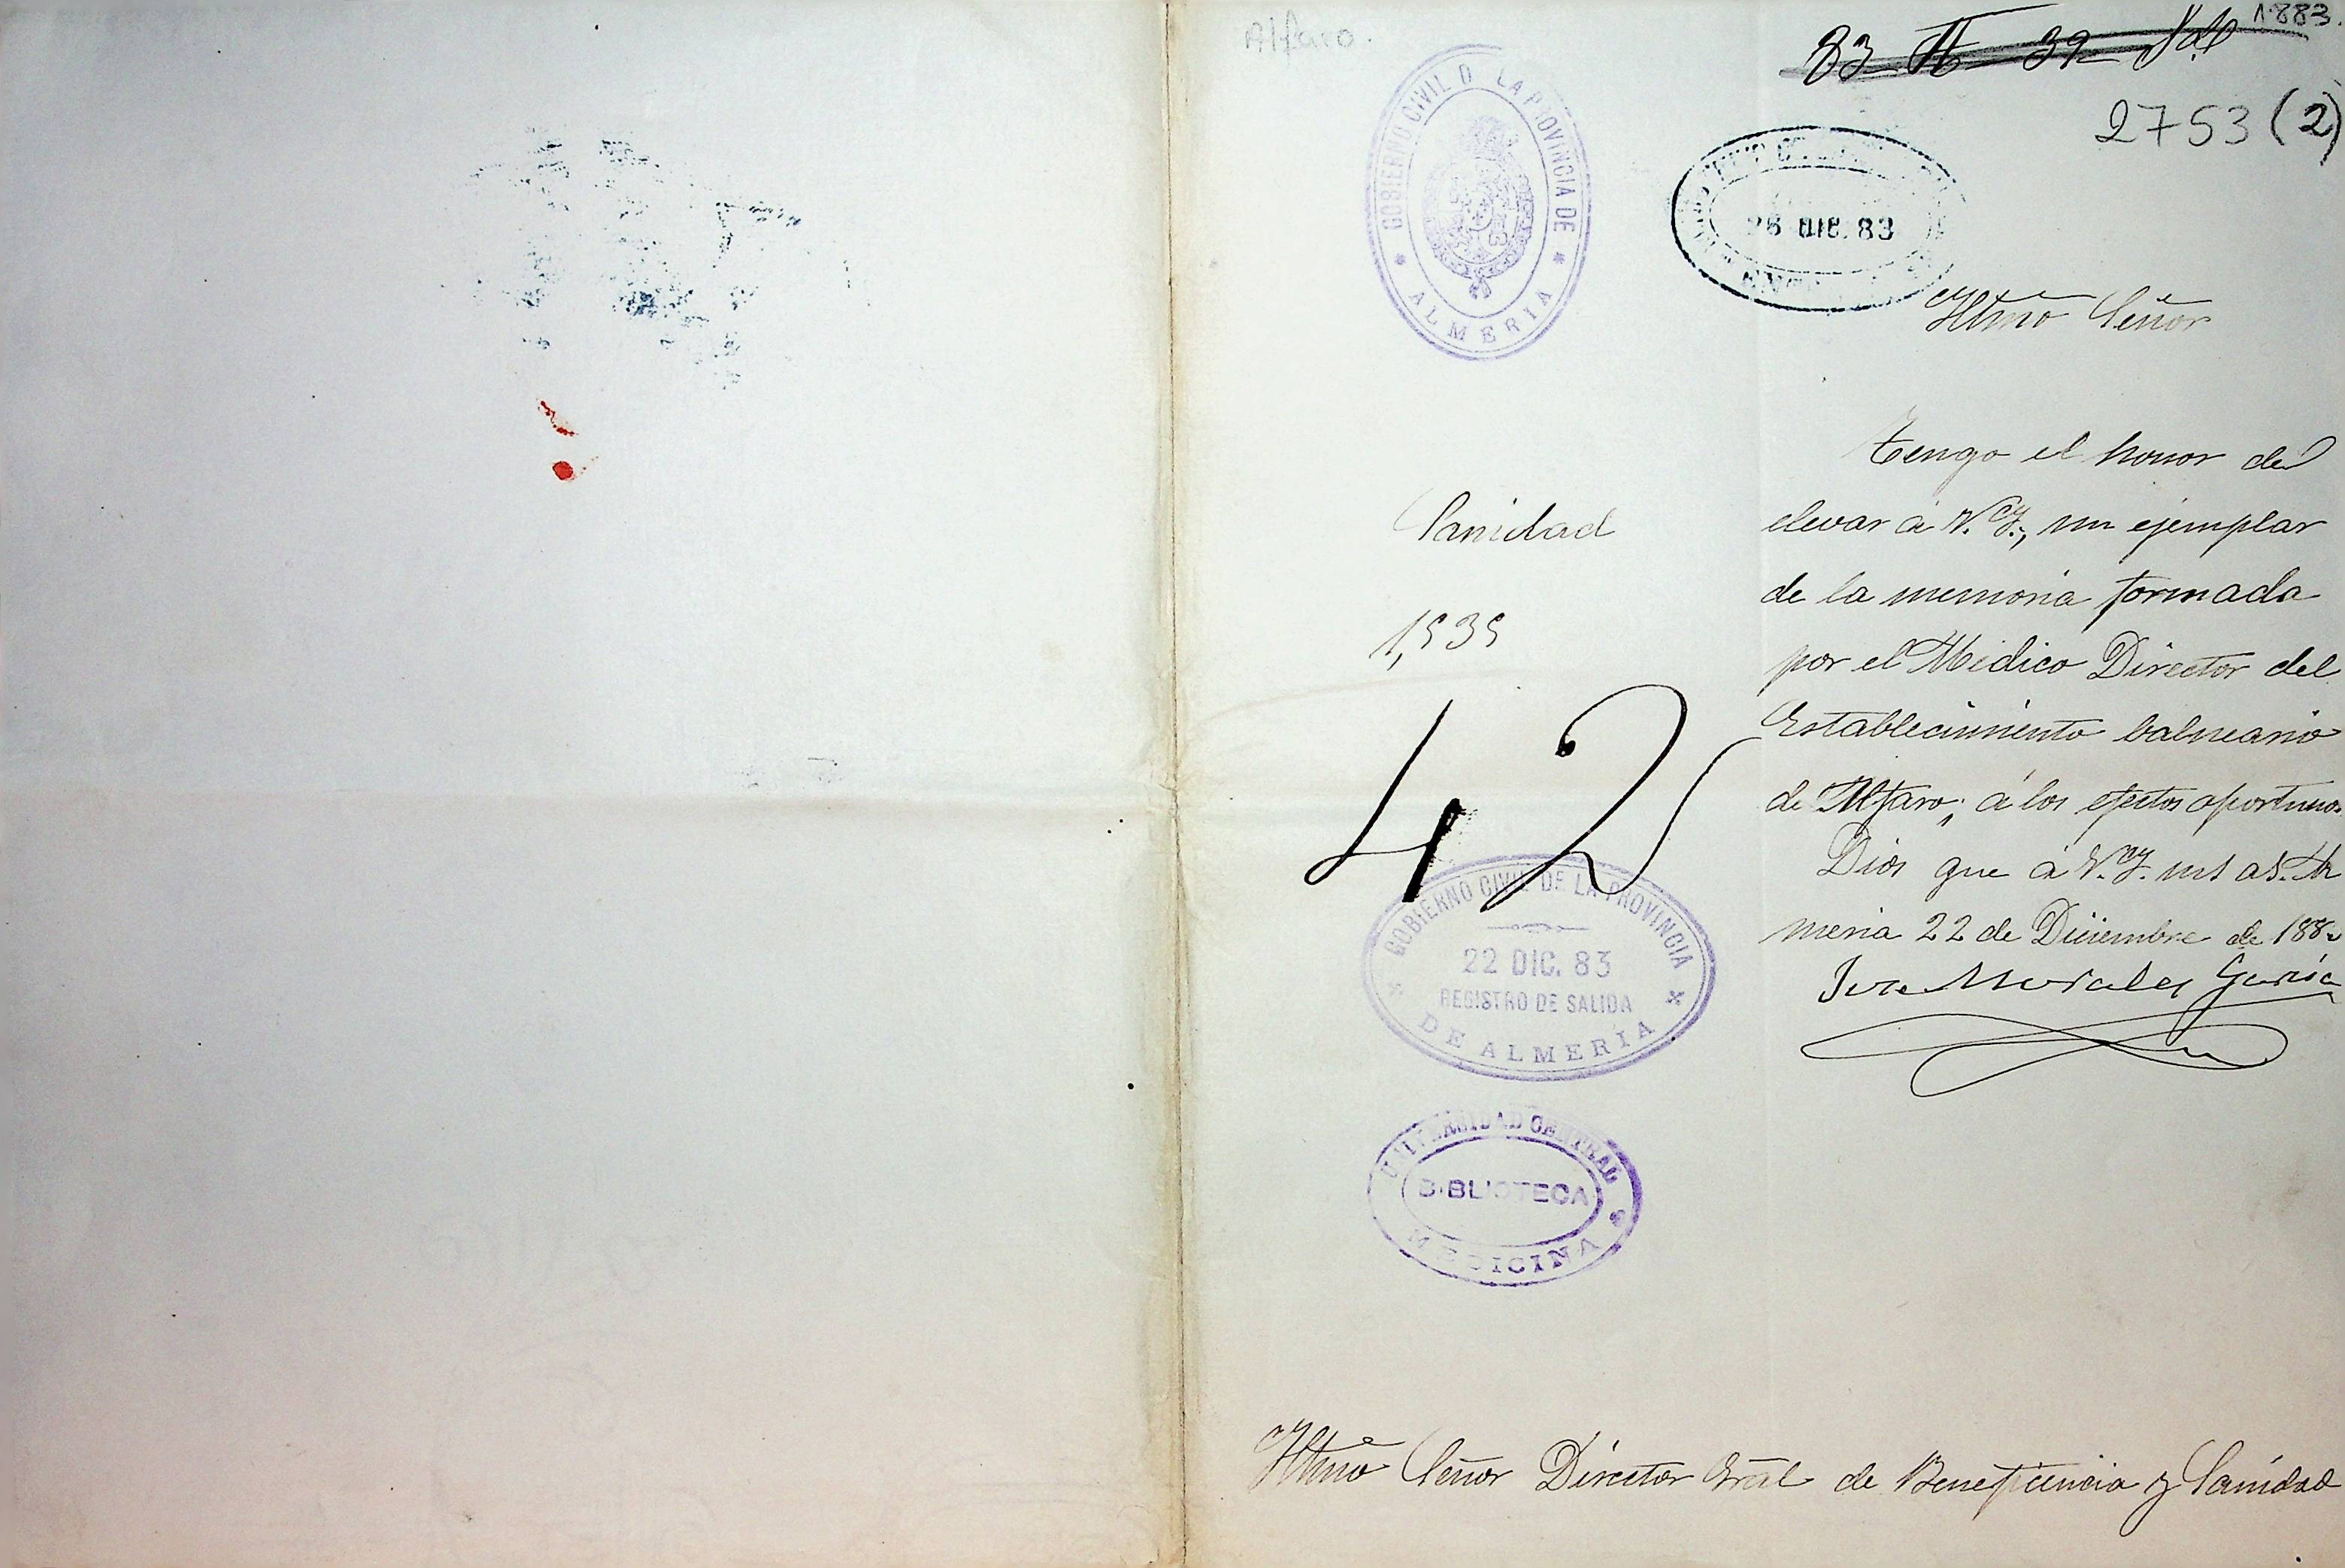 Alfaro.
1883.
83 - 39
2753 (2)
GOBIERNO CIVIL D LA PROVINCIA DE
ALMERIA
26 DIC. 83
Iltmo Señor
Tengo el honor de
elevar á V. Y., un ejemplar
de la memoria formada
por el Médico Director del
Establecimiento balneario
de Alfaro; á los efectos oportunos.
Dios gue á V. Y. ms as. Al
meria 22 de Diciembre de 188
Jose Morales Garcia
Sanidad
1,535
42
GOBIERNO CIVIL DE LA PROVINCIA
22 DIC. 83
REGISTRO DE SALIDA
DE ALMERIA
UNIVERSIDAD CENTRAL
BIBLIOTECA
MEDICINA
Iltmo Señor Director Gral de Beneficencia y Sanidad